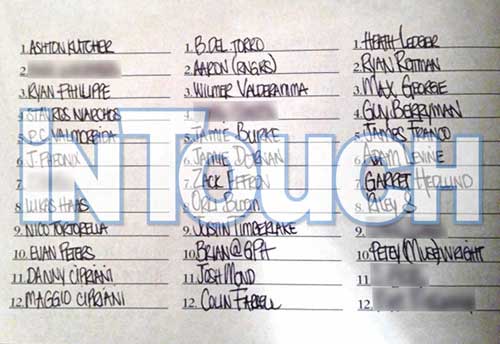 1. ASHTON KUTCHER
2.
3. RYAN PHILIPPE
4. STAVROS NIARCHOS
5. P.C. VALMORBIDA
6. J. PHEONIX
7.
8. LUKAS HAAS
9. NICO TORTORELLA
10. EVAN PETERS
11. DANNY CIPRIANI
12. MAGGIO CIPRIANI
1. B. DEL TORRO
2. AARON (RNGRS)
3. WILMER VALDERAMA
4.
5. JAMIE BURKE
6. JAMIE DORNAN
7. ZACK EFFRON
8. BLOOM
9. JUSTIN TIMBERLAKE
10. BRIAN@GPA
11. JOSH MOND
12. COLIN FARRELL
1. HEATH LEDGER
2. RYAN ROTTMAN
3. MAX GEORGE
4. GUY BERRYMAN
5. JAMES FRANCO
6. ADAM LEVINE
7. GARRET HEDLUND
8. RILEY S
9.
10. PETEY (MUSE) WRIGHT
11.
12.
INTOUCH